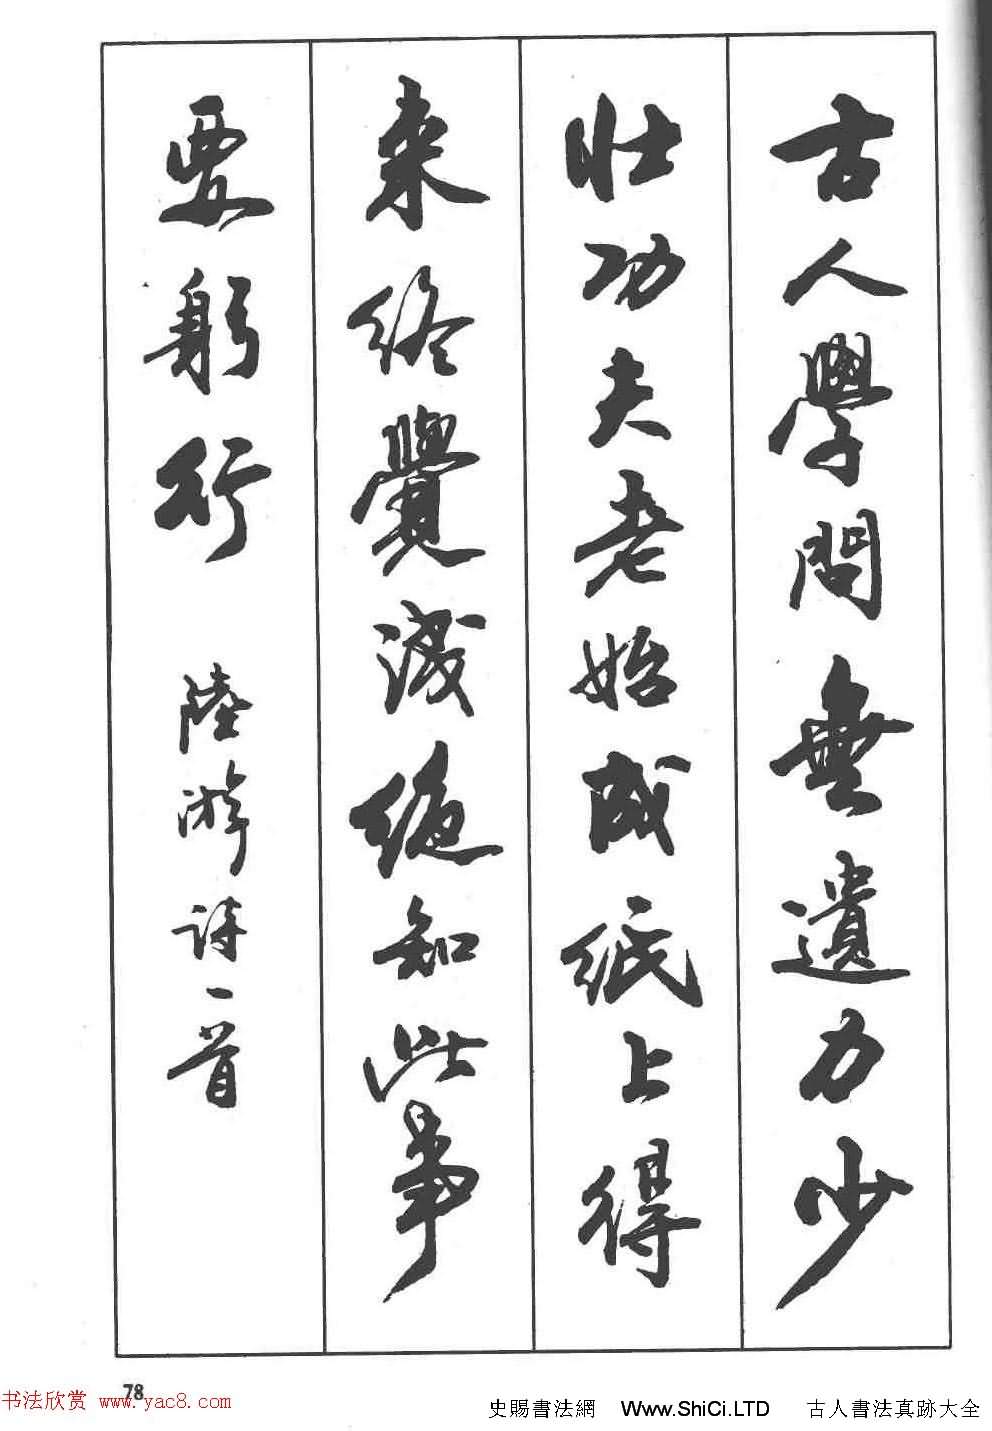 古人學問無遺力少
壮功夫老始成紙上得
来終覺淺絶知此事
要躬行 陸游詩一首
78
书法欣赏 www.yac8.com
史賜書法網 Www.ShiCi.LTD 古人書法真跡大全